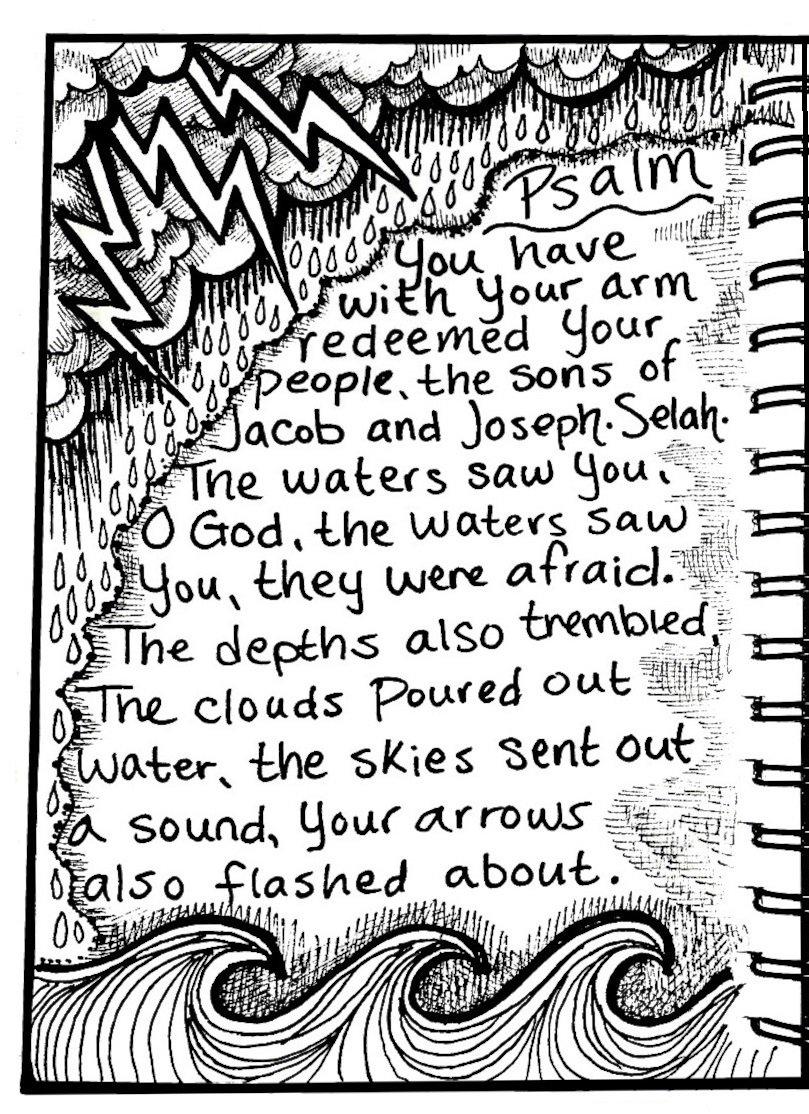 Psalm
You have
with your arm
redeemed your
people, the sons of
Jacob and Joseph. Selah.
The waters saw you,
O God, the waters saw
You, they were afraid.
The depths also trembled,
The clouds Poured out
water, the skies sent out
a sound, Your arrows
also flashed about.